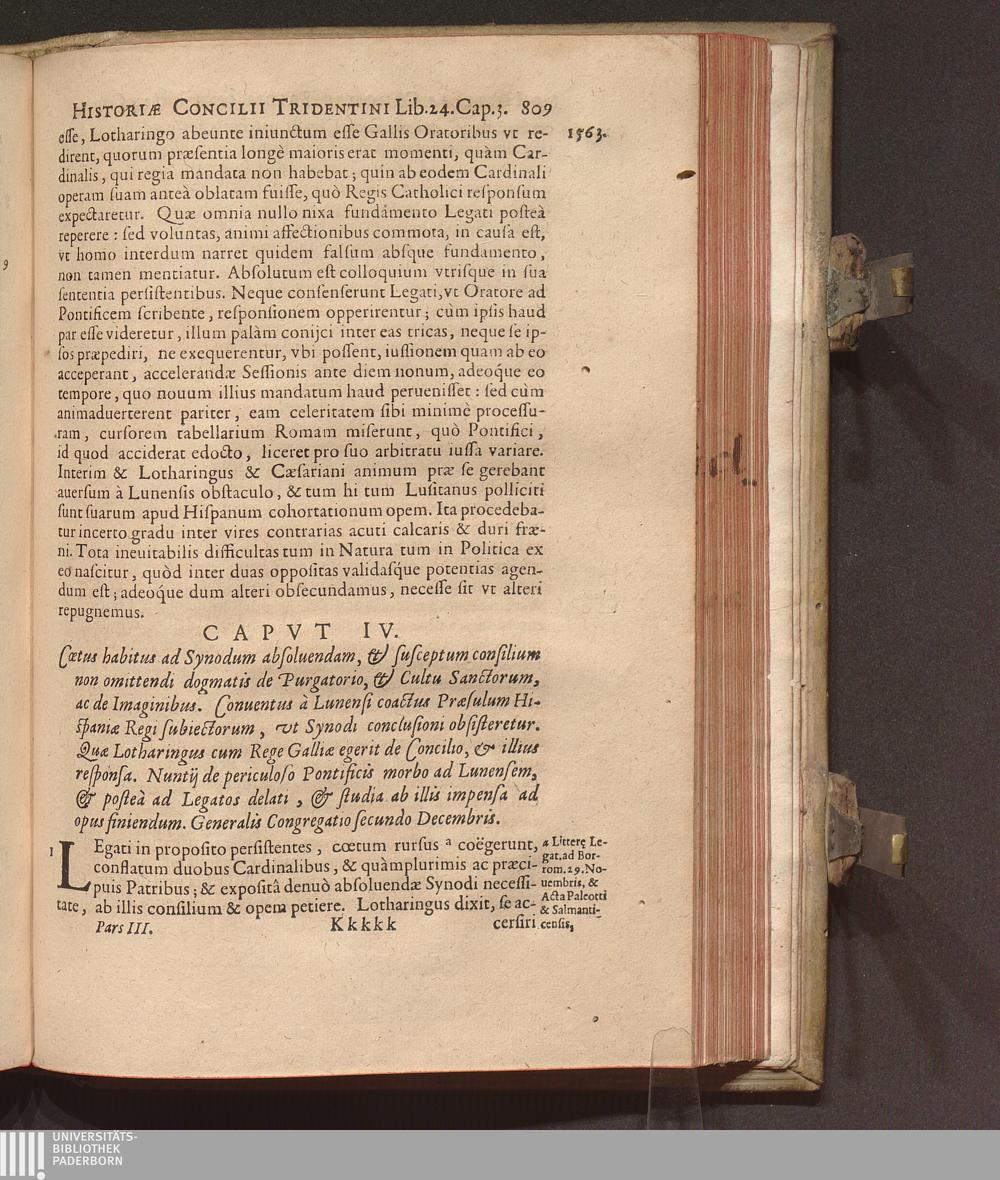 HISTORIÆ CONCILII TRIDENTINI Lib.24.Cap.3. 809
esse, Lotharingo abeunte iniunctum esse Gallis Oratoribus vt re- 1563.
dirent, quorum præsentia longè maioris erat momenti, quàm Car-
dinalis, qui regia mandata non habebat; quin ab eodem Cardinali
operam suam anteà oblatam fuisse, quò Regis Catholici responsum
expectaretur. Quæ omnia nullo nixa fundamento Legati posteà
reperere: sed voluntas, animi affectionibus commota, in causa est,
vt homo interdum narret quidem falsum absque fundamento,
non tamen mentiatur. Absolutum est colloquium vtrisque in sua
sententia persistentibus. Neque consenserunt Legati, vt Oratore ad
Pontificem scribente, responsionem opperirentur; cùm ipsis haud
par esse videretur, illum palàm conijci inter eas tricas, neque se ip-
sos præpediri, ne exequerentur, vbi possent, iussionem quam ab eo
acceperant, accelerandæ Sessionis ante diem nonum, adeoq́ue eo
tempore, quo nouum illius mandatum haud peruenisset: sed cùm
animaduerterent pariter, eam celeritatem sibi minimè processu-
ram, cursorem tabellarium Romam miserunt, quò Pontifici,
id quod acciderat edocto, liceret pro suo arbitratu iussa variare.
Interim & Lotharingus & Cæsariani animum præ se gerebant
auersum à Lunensis obstaculo, & tum hi tum Lusitanus polliciti
sunt suarum apud Hispanum cohortationum opem. Ita procedeba-
tur incerto gradu inter vires contrarias acuti calcaris & duri fræ-
ni. Tota ineuitabilis difficultas tum in Natura tum in Politica ex
eo nascitur, quòd inter duas oppositas validasq́ue potentias agen-
dum est; adeoq́ue dum alteri obsecundamus, necesse sit vt alteri
repugnemus.
CAPVT IV.
Cœtus habitus ad Synodum absoluendam, & susceptum consilium
non omittendi dogmatis de Purgatorio, & Cultu Sanctorum,
ac de Imaginibus. Conuentus à Lunensi coactus Præsulum Hi-
spaniæ Regi subiectorum, vt Synodi conclusioni obsisteretur.
Quæ Lotharingus cum Rege Galliæ egerit de Concilio, & illius
responsa. Nuntij de periculoso Pontificis morbo ad Lunensem,
& posteà ad Legatos delati, & studia ab illis impensa ad
opus finiendum. Generalis Congregatio secundo Decembris.
1 LEgati in proposito persistentes, cœtum rursus a coëgerunt,
conflatum duobus Cardinalibus, & quàmplurimis ac præci-
puis Patribus; & expositâ denuò absoluendæ Synodi necessi-
tate, ab illis consilium & opem petiere. Lotharingus dixit, se ac-
a Litterę Le-
gat.ad Bor-
rom.29.No-
uembris, &
Acta Paleotti
& Salmanti-
censis,
Pars III. Kkkkk cersiri
9
UNIVERSITÄTS-
BIBLIOTHEK
PADERBORN